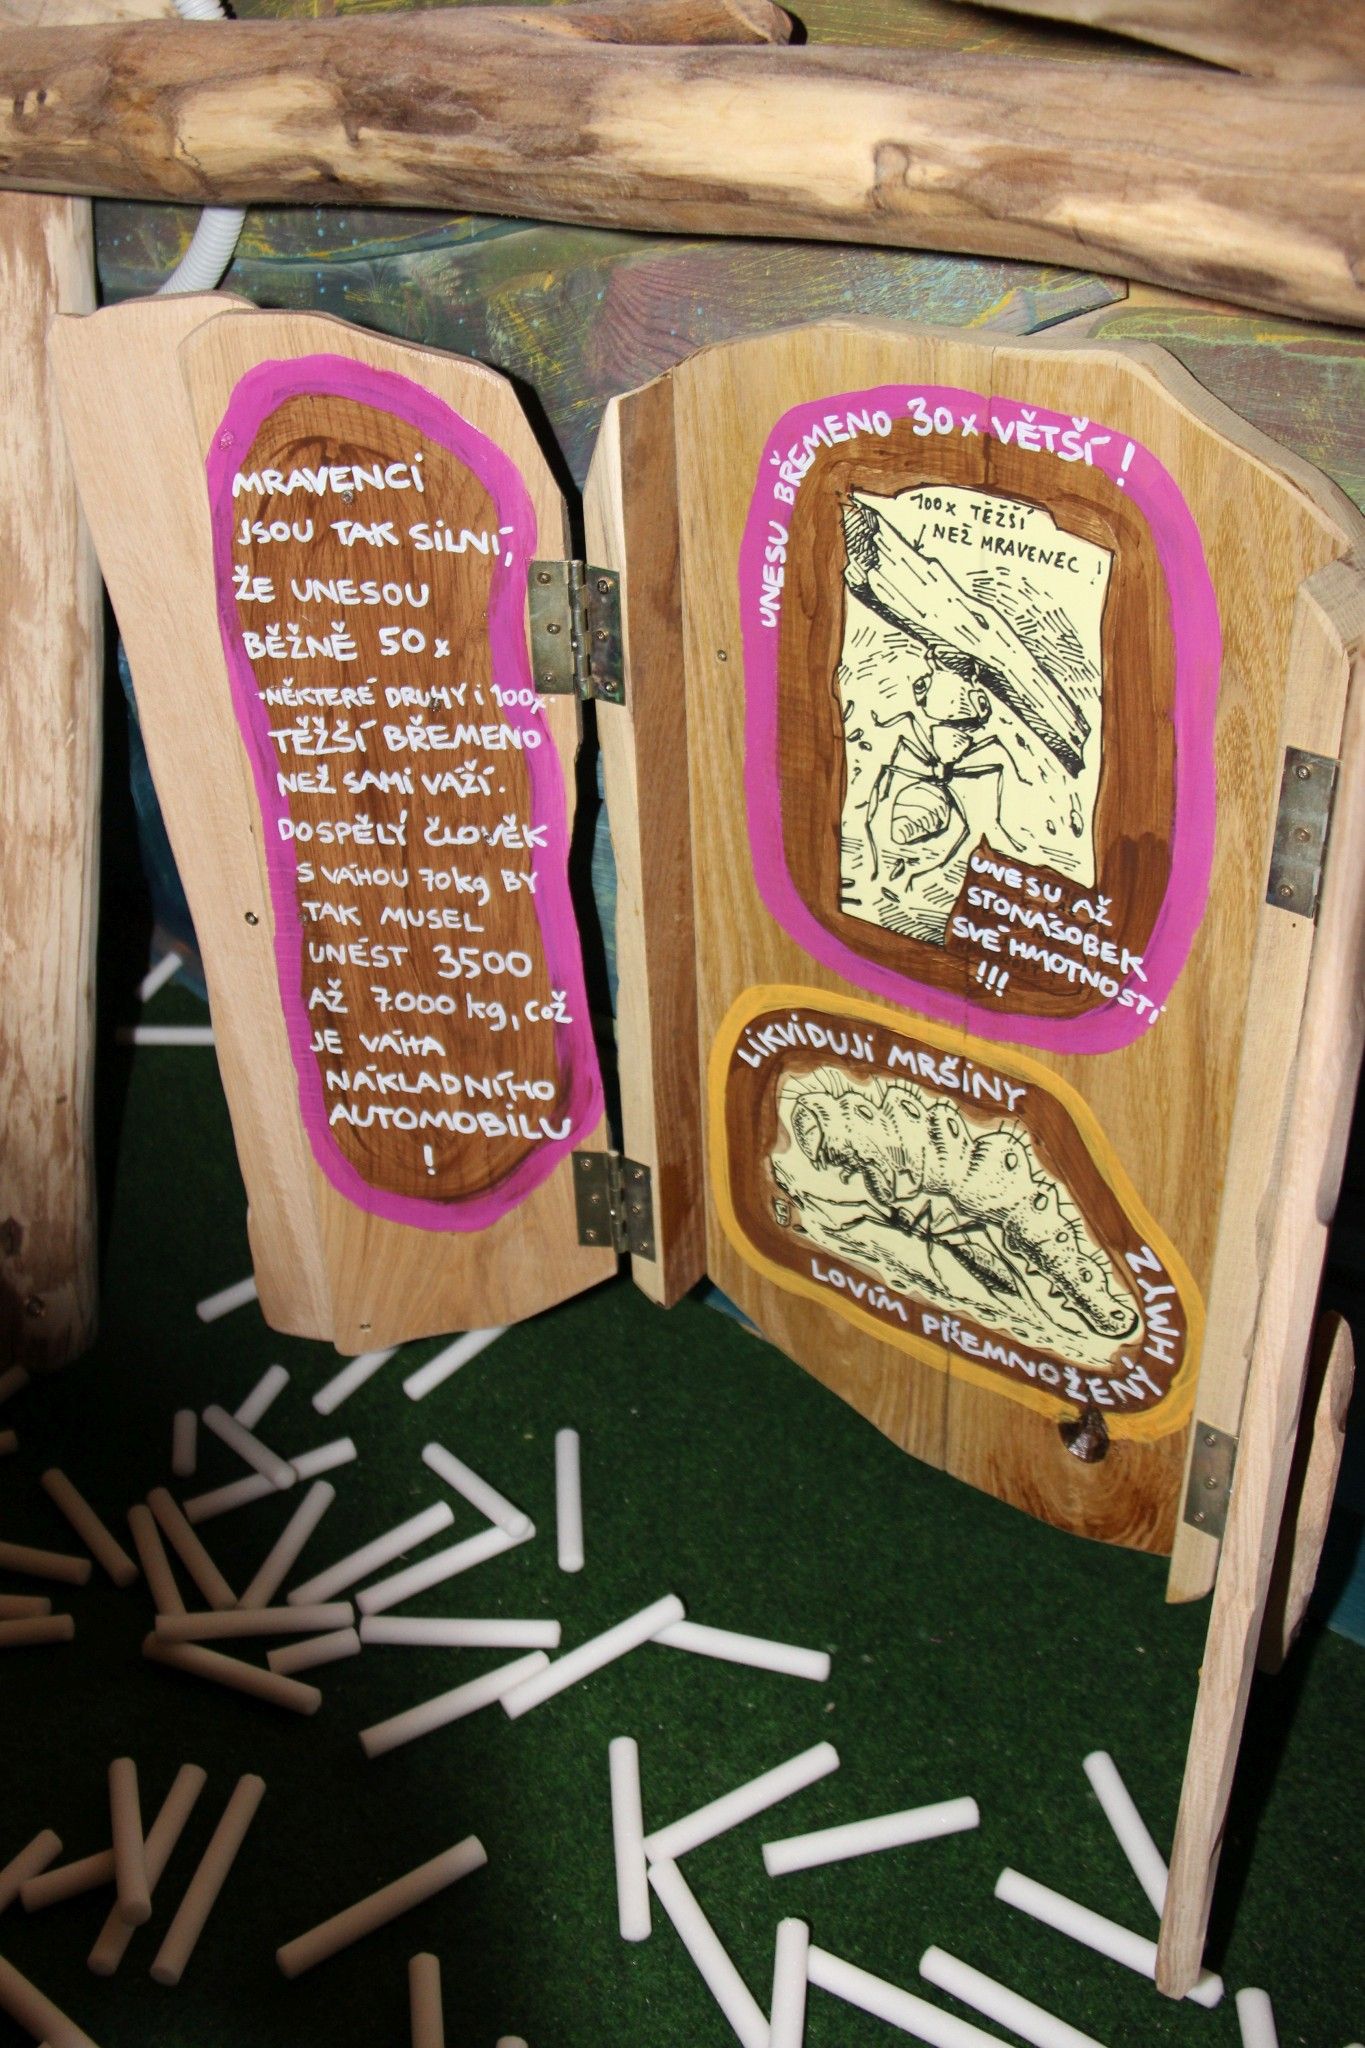 MRAVENCI
JSOU TAK SILNÍ,
ŽE UNESOU
BĚŽNĚ 50x
·NĚKTERÉ DRUHY i 100x·
TĚŽŠÍ BŘEMENO
NEŽ SAMI VÁŽÍ.
DOSPĚLÝ ČLOVĚK
S VÁHOU 70kg BY
TAK MUSEL
UNÉST 3500
AŽ 7000 kg, COŽ
JE VÁHA
NÁKLADNÍHO
AUTOMOBILU
!
UNESU BŘEMENO 30x VĚTŠÍ!
100x TĚŽŠÍ
NEŽ MRAVENEC!
UNESU AŽ
STONÁSOBEK
SVÉ HMOTNOSTI
!!!
LIKVIDUJI MRŠINY
LOVÍM PŘEMNOŽENÝ HMYZ